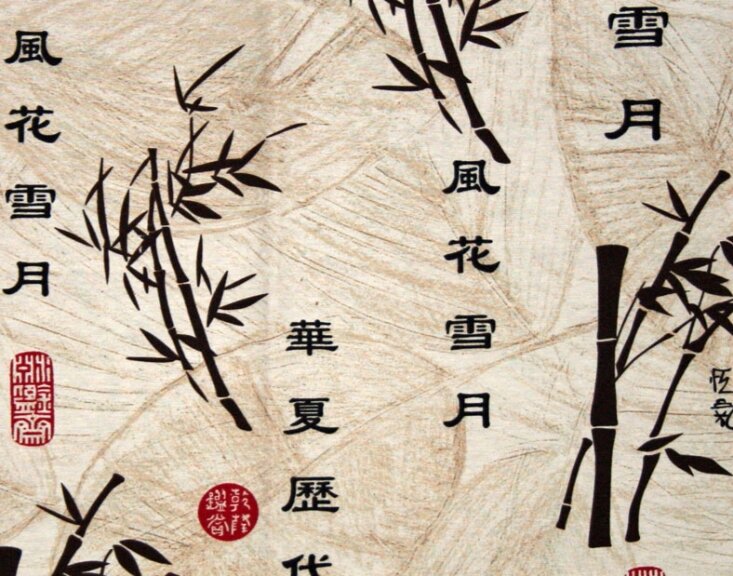 風花雪月
華夏歷代
風花雪月
雪月